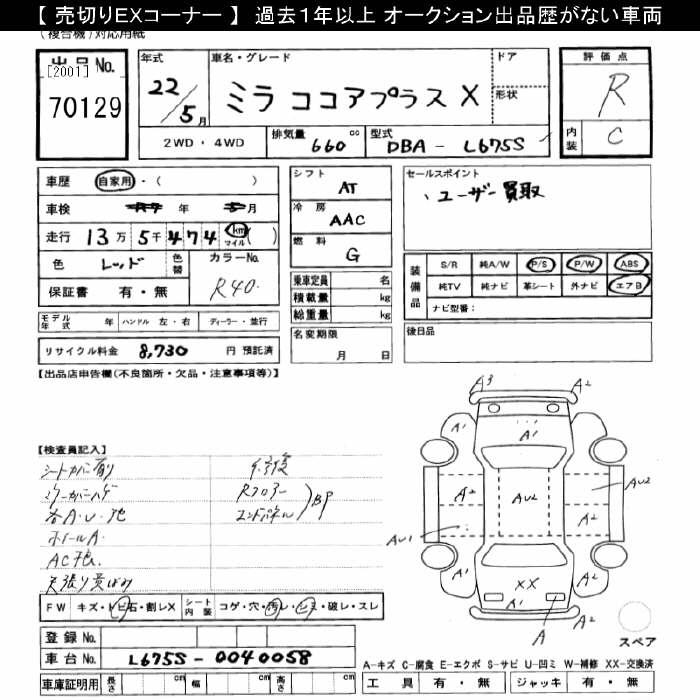 【 売切りEXコーナー 】 過去1年以上 オークション出品歴がない車両
(複合機)対応用紙
出品No.
[2001]
70129
年式
22/5月
車名・グレード
ミラ ココアプラス X
ドア
形状
評価点
R
内装
C
2WD・4WD
排気量 660 cc
型式 DBA - L675S
車歴 自家用・( )
車検 R7 年 5月
走行 13万 5千474 km マイル ( )
色 レッド
色替
カラーNo. R40
保証書 有・無
シフト AT
冷房 AAC
燃料 G
乗車定員 名
積載量 kg
総重量 kg
名変期限
月 日
セールスポイント
、ユーザー買取
装備品
S/R 純A/W P/S P/W ABS
純TV 純ナビ 革シート 外ナビ エアB
ナビ型番:
後日品
モデル年式 年 ハンドル 左・右 ディーラー・並行
リサイクル料金 8,730 円 預託済
【出品店申告欄(不良箇所・欠品・注意事項等)】
【検査員記入】
シートカバー有り
ミラーカバーハゲ
各A・U・他
ホイールA.
修復
Rフロアー
エンドパネル
BP
A3
A2
A1
A1
A1
A2
AU2
AU2
A2
AU1
A1
A2
XX
A1
A
A2
スペア
FW キズ・トビ石・割レX
シート内装 コゲ・穴・汚レ・シミ・破レ・スレ
登録 No.
車台 No. L675S-0040058
車庫証明用 長さ cm 幅 cm 高さ cm
A-キズ C-腐食 E-エクボ S-サビ U-凹ミ W-補修 XX-交換済
工具 有・無 ジャッキ 有・無